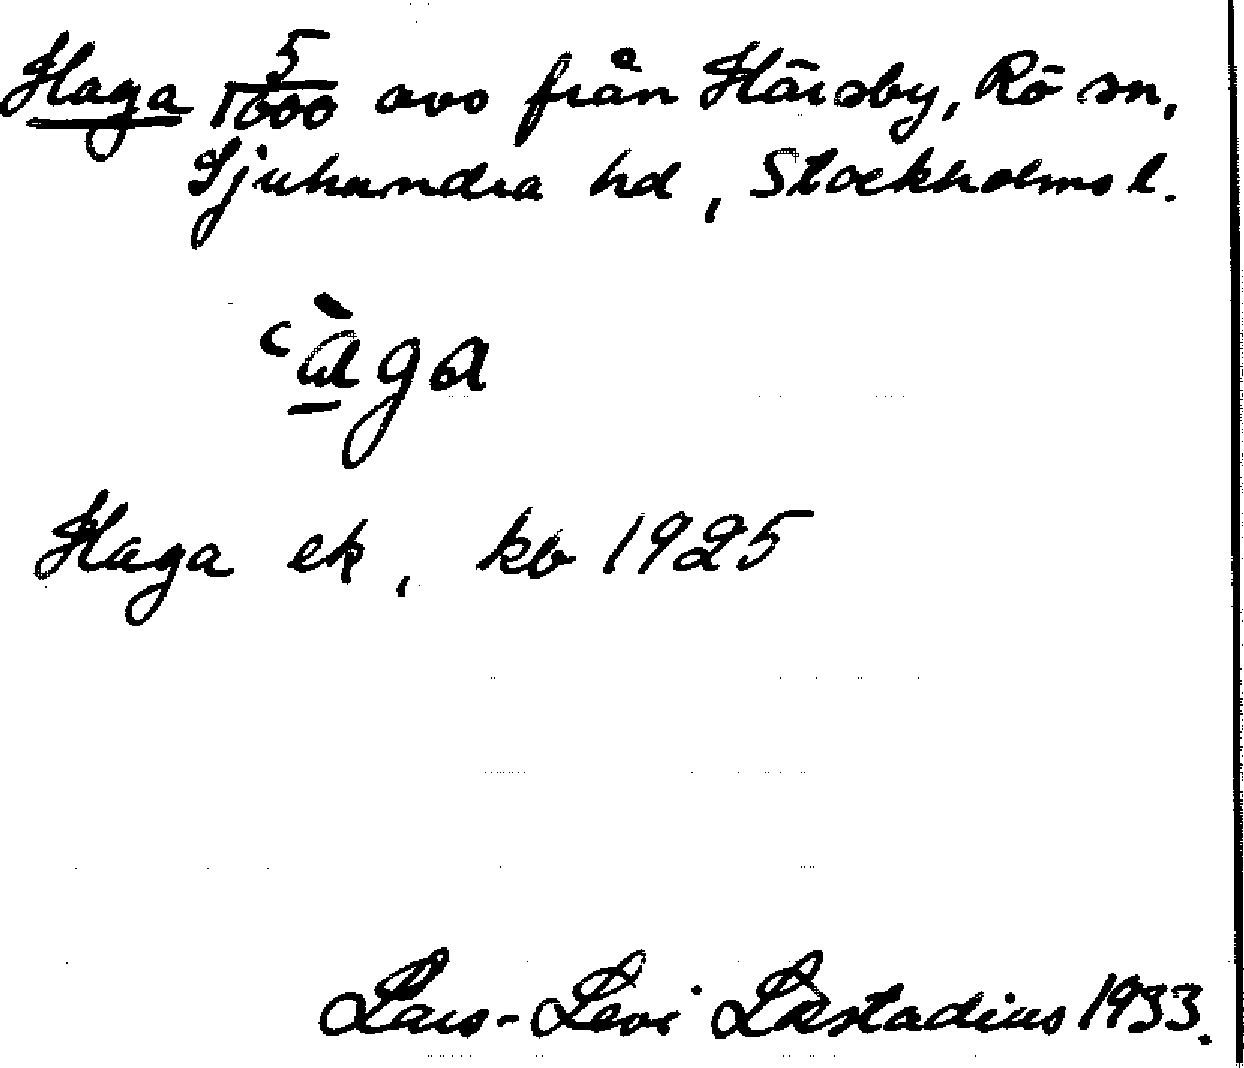 Haga 5/1600 avs från Härsby, Rö sn,
Sjuhundra hd, Stockholms l.
‘àga
Haga ek, kb 1925
Lars-Levi Læstadius 1933.